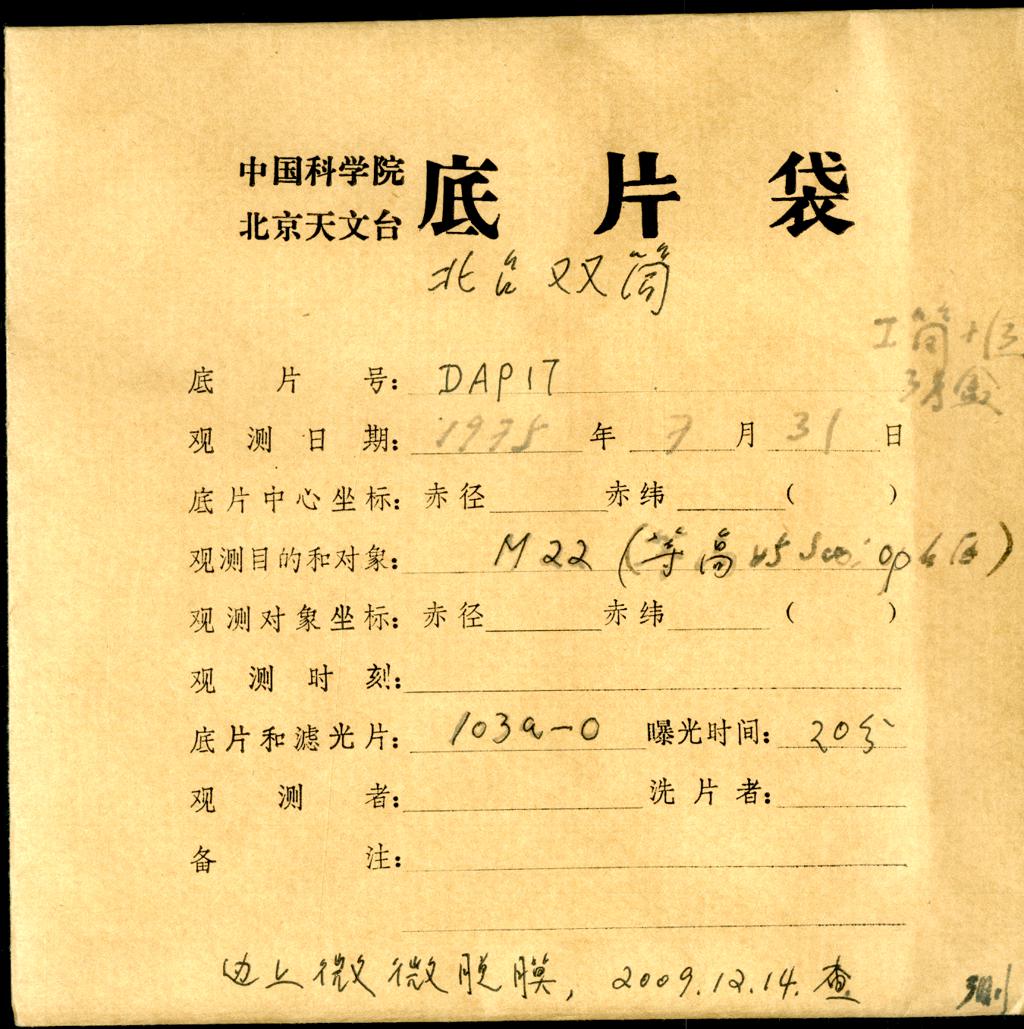 中国科学院
北京天文台
底片袋
北台双筒
底片号: DAP17
观测日期: 1975年7月31日
底片中心坐标: 赤径 赤纬 ( )
观测目的和对象: M22 (等高
观测对象坐标: 赤径 赤纬 ( )
观测时刻:
底片和滤光片: 103a-O 曝光时间: 20分
观测者: 洗片者:
备注:
边上微微脱膜, 2009.12.14.查